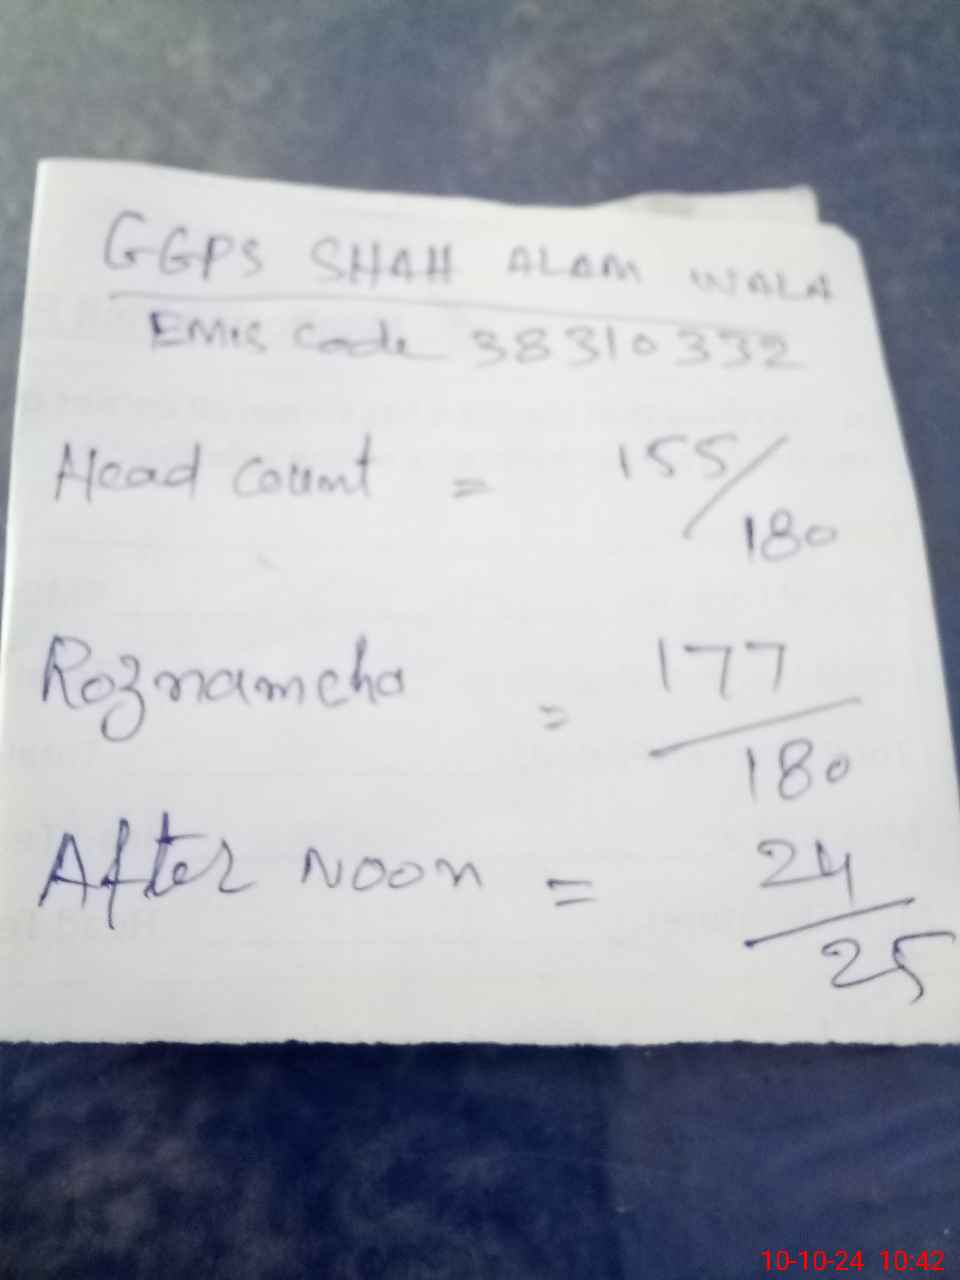 GGPS SHAH ALAM WALA
EMIS Code 38310332
Head count = 155/180
Roznamcha = 177/180
After Noon = 24/25
10-10-24 10:42